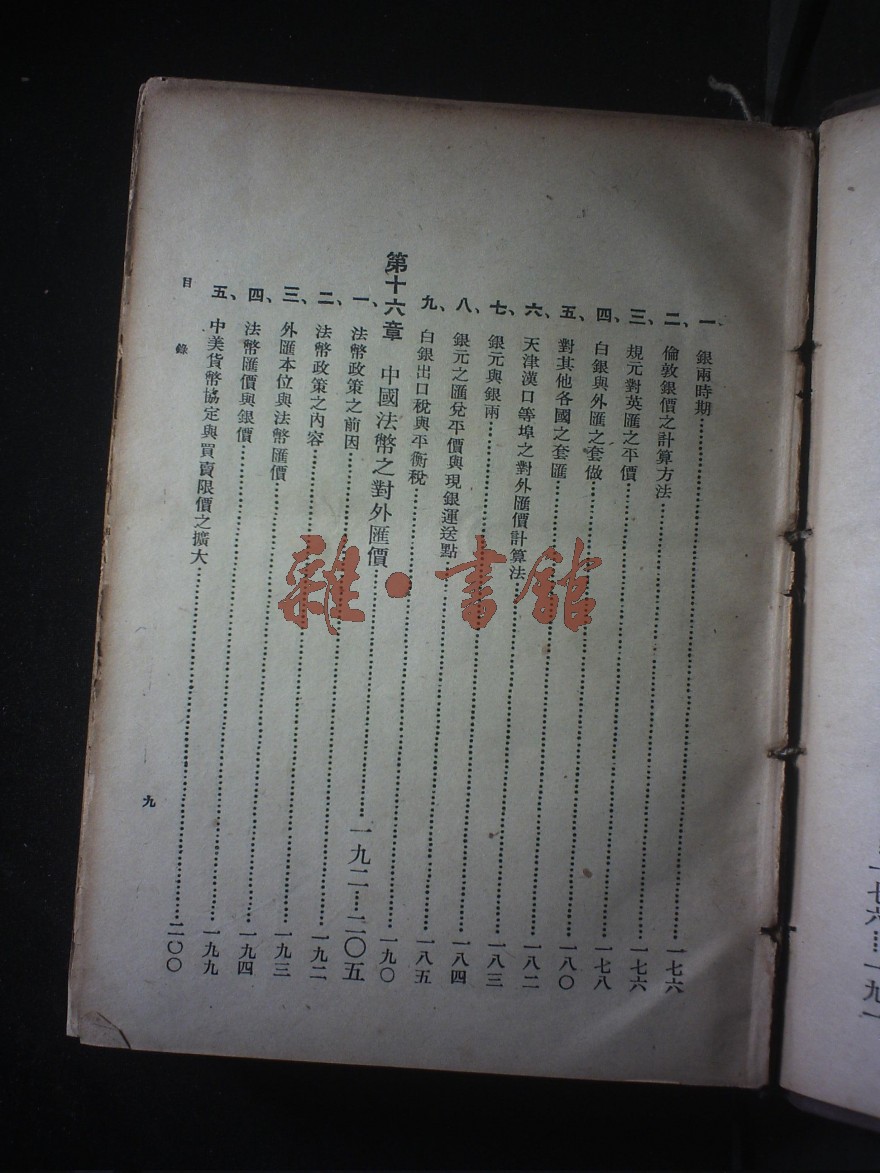 一七六……一九一
一、銀兩時期……一七六
二、倫敦銀價之計算方法……一七六
三、規元對英匯之平價……一七八
四、白銀與外匯之套做……一八〇
五、對其他各國之套匯……一八二
六、天津漢口等埠之對外匯價計算法……一八三
七、銀元與銀兩……一八四
八、銀元之匯兌平價與現銀運送點……一八五
九、白銀出口稅與平衡稅……一九〇
第十六章 中國法幣之對外匯價……一九二……二〇五
一、法幣政策之前因……一九二
二、法幣政策之內容……一九三
三、外匯本位與法幣匯價……一九四
四、法幣匯價與銀價……一九九
五、中美貨幣協定與買賣限價之擴大……二〇〇
目錄
九
雜·書館